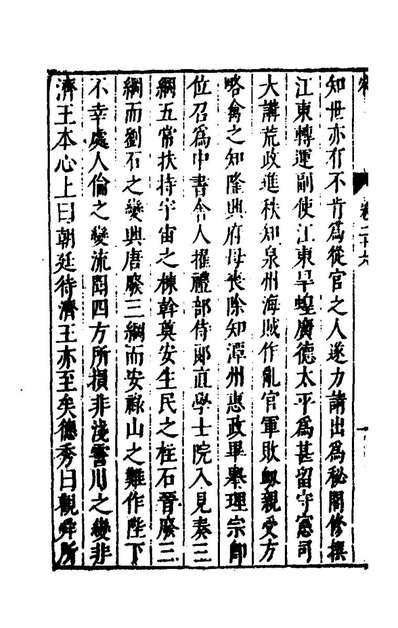 卷二十六
知世亦有不肯爲從官之人遂力請出爲秘閣修撰
江東轉運副使江東旱蝗廣德太平爲甚畱守憲司
大講荒政進秩知泉州海賊作亂官軍敗衂親受方
略禽之知隆興府母喪除知潭州惠政畢舉理宗卽
位召爲中書舍人擢禮部侍郎直學士院入見奏三
綱五常扶持宇宙之棟幹奠安生民之柱石晉廢三
綱而劉石之變興唐廢三綱而安祿山之難作陛下
不幸處人倫之變流聞四方所損非淺霅川之變非
濟王本心上曰朝廷待濟王亦至矣德秀曰觀舜所